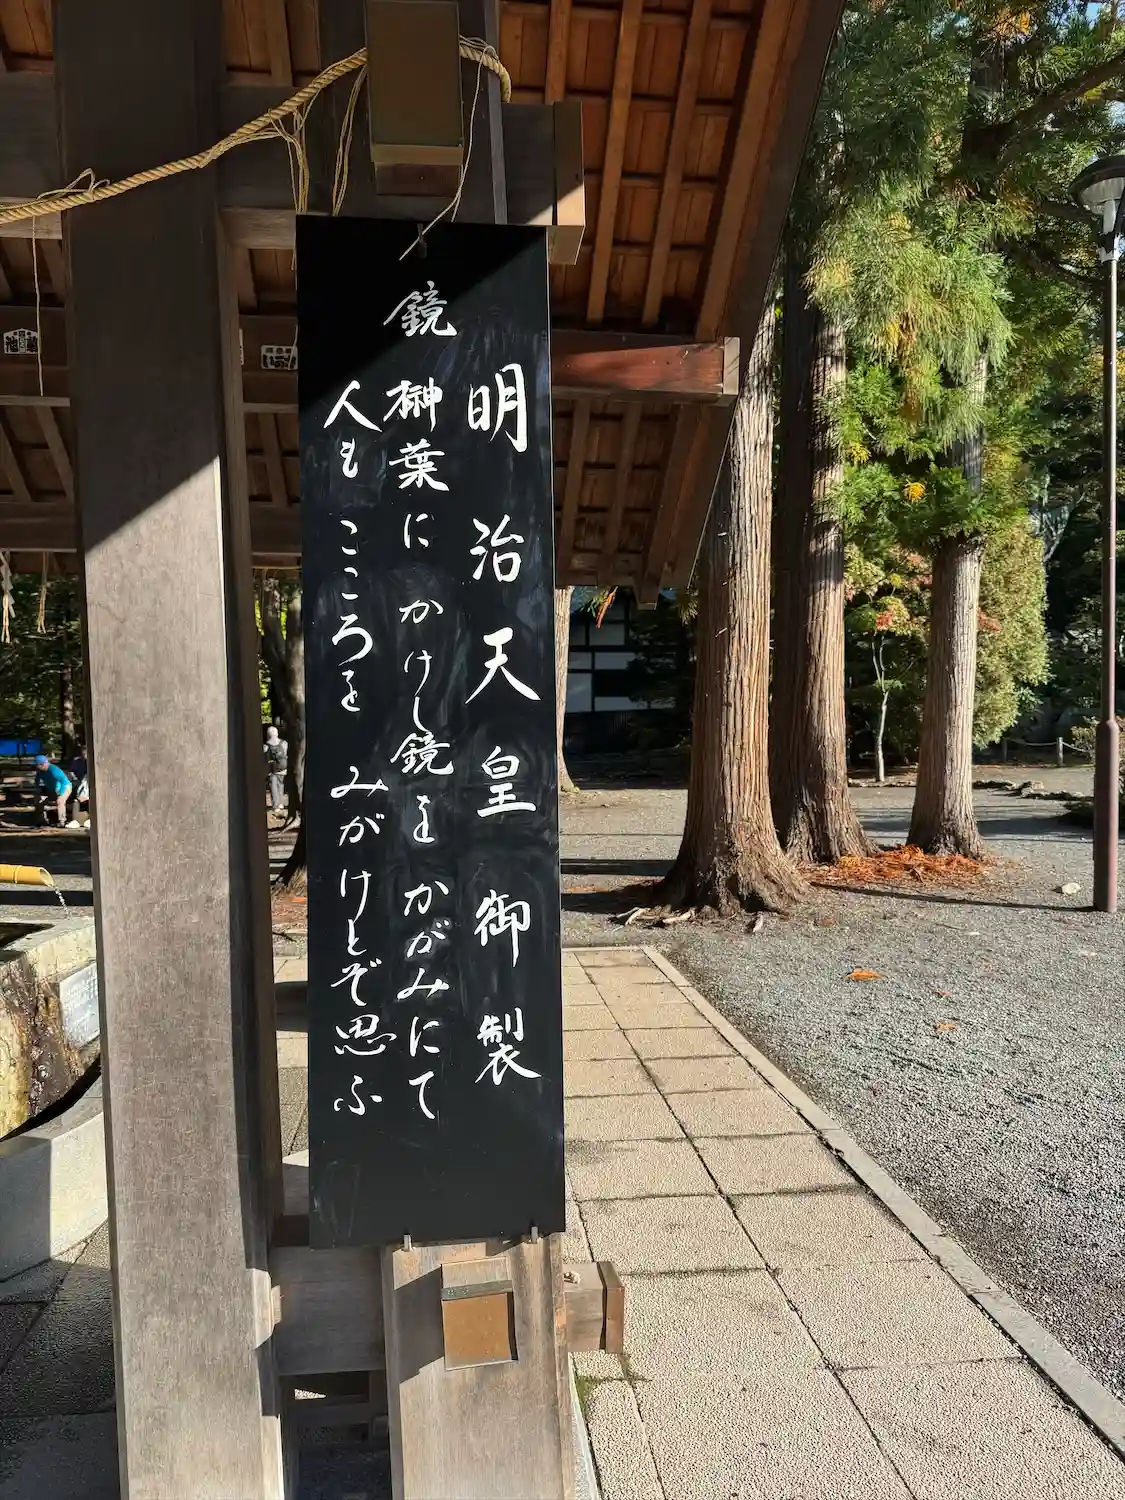 明治天皇御製
鏡
榊葉にかけし鏡をかがみにて
人もこころをみがけとぞ思ふ